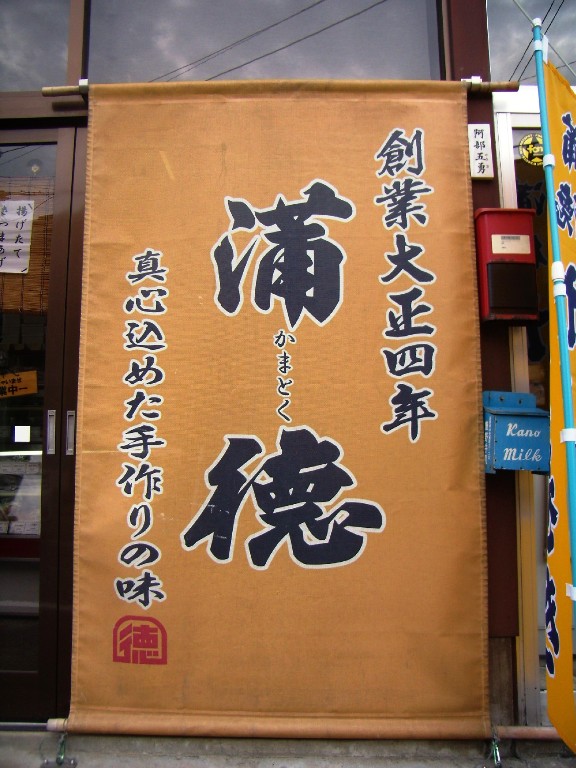 創業大正四年
蒲徳
かまとく
真心込めた手作りの味
徳
阿部五勇
揚げたて
Kano
Milk